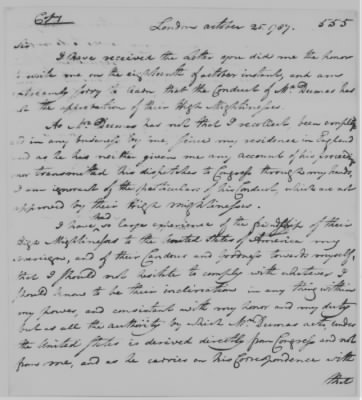 Copy
London October 25. 1787. 555
Sir
I have received the Letter you did me the honor
to write me on the eighteenth of october instant, and am
extreamly sorry to learn that the Conduct of Mr Dumas has
not the approbation of their High Mightinesses.
As Mr Dumas has not that I recollect, been employed
in any business by me, since my residence in England
and as he has neither given me any account of his proceedings
nor transmitted his dispatches to Congress through my hands,
I am ignorant of the particulars of his Conduct, which are not
approved by their High mightinesses.
I have had so large experience of the friendship of their
High Mightinesses to the United States of America my
Sovereign, and of their Candour and Goodness towards myself,
that I should not hesitate to comply with whatever I
should know to be their inclination in any thing within
my power, and consistent with my honor and my duty
but as all the authority by which Mr Dumas acts, under
the United States is derived directly from Congress and not
from me, and as he carries on his Correspondence with
that